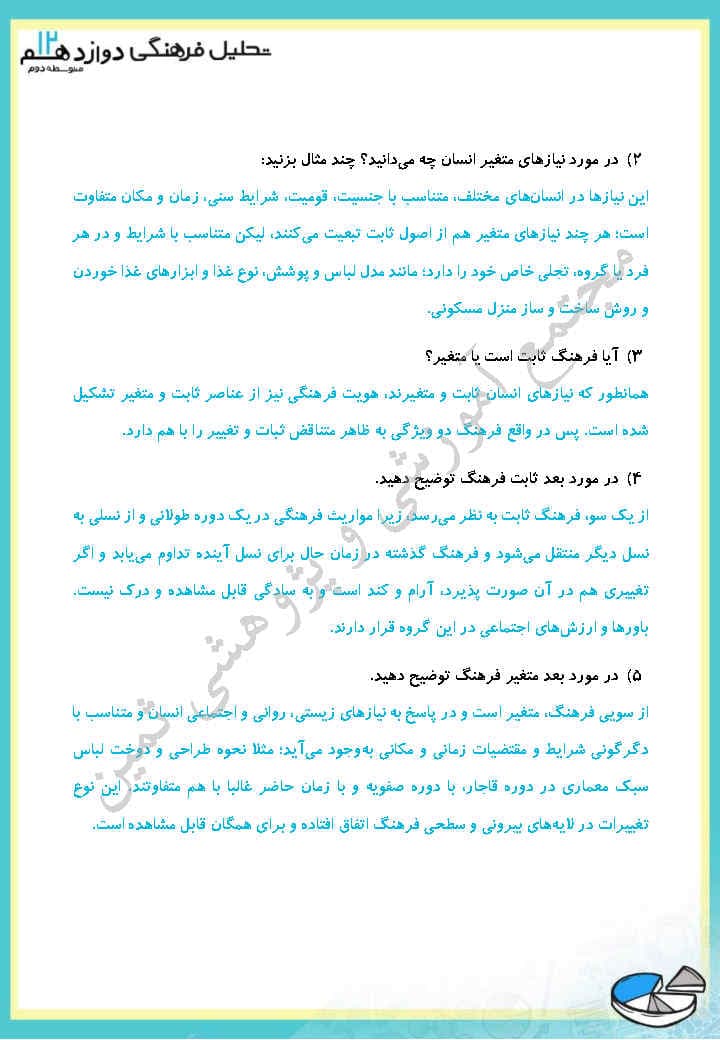 تحلیل فرهنگی دوازدهم ۱۲
متوسطه دوم
۲) در مورد نیازهای متغیر انسان چه می‌دانید؟ چند مثال بزنید:
این نیازها در انسان‌های مختلف، متناسب با جنسیت، قومیت، شرایط سنی، زمان و مکان متفاوت
است؛ هر چند نیازهای متغیر هم از اصول ثابت تبعیت می‌کنند، لیکن متناسب با شرایط و در هر
فرد یا گروه، تجلی خاص خود را دارد؛ مانند مدل لباس و پوشش، نوع غذا و ابزارهای غذا خوردن
و روش ساخت و ساز منزل مسکونی.
۳) آیا فرهنگ ثابت است یا متغیر؟
همانطور که نیازهای انسان ثابت و متغیرند، هویت فرهنگی نیز از عناصر ثابت و متغیر تشکیل
شده است. پس در واقع فرهنگ دو ویژگی به ظاهر متناقض ثبات و تغییر را با هم دارد.
۴) در مورد بعد ثابت فرهنگ توضیح دهید.
از یک سو، فرهنگ ثابت به نظر می‌رسد، زیرا مواریث فرهنگی در یک دوره طولانی و از نسلی به
نسل دیگر منتقل می‌شود و فرهنگ گذشته در زمان حال برای نسل آینده تداوم می‌یابد و اگر
تغییری هم در آن صورت پذیرد، آرام و کند است و به سادگی قابل مشاهده و درک نیست.
باورها و ارزش‌های اجتماعی در این گروه قرار دارند.
۵) در مورد بعد متغیر فرهنگ توضیح دهید.
از سویی فرهنگ، متغیر است و در پاسخ به نیازهای زیستی، روانی و اجتماعی انسان و متناسب با
دگرگونی شرایط و مقتضیات زمانی و مکانی به‌وجود می‌آید؛ مثلا نحوه طراحی و دوخت لباس
سبک معماری در دوره قاجار، با دوره صفویه و با زمان حاضر غالبا با هم متفاوتند. این نوع
تغییرات در لایه‌های بیرونی و سطحی فرهنگ اتفاق افتاده و برای همگان قابل مشاهده است.
مجتمع آموزشی و پژوهشی ثمین